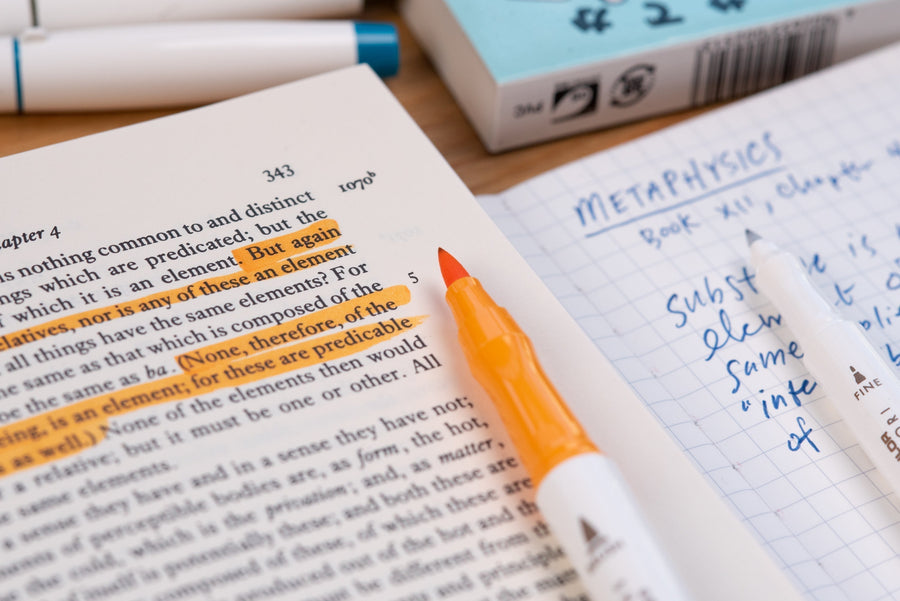 343
1070b
apter 4
is nothing common to and distinct
ngs which are predicated; but the
f which it is an element. But again
elatives, nor is any of these an element
all things have the same elements? For
5
he same as that which is composed of the
be the same as ba. (None, therefore, of the
eing, is an element; for these are predicable
s as well.) None of the elements then would
r a relative; but it must be one or other. All
same elements.
a sense they have and in a sense they have not;
ents of perceptible bodies are, as form, the hot,
the cold, which is the privation; and, as matter,
of itself is potentially these; and both these are
composed of these, of which these are
produced out of the hot and the
must be different from the
and principle
METAPHYSICS
Book XII, Chapter
subst
is
elem
same
"inte
of
FINE
# 2 #